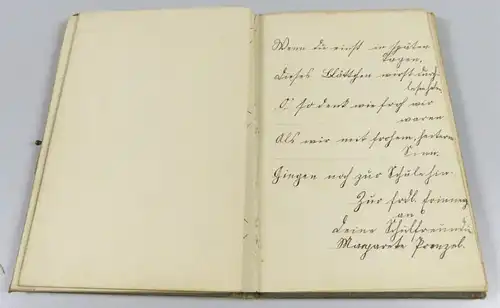 Wenn du einst in später
Tagen,
Dieses Blättchen wirst durch
O, so denk wie froh wir
waren
Als wir mit frohem, heiterm
Sinn,
Gingen noch zur Schule hin.
Zur frdl. Erinnrg
an
Deine Schulfreundin
Margarete Prenzel.